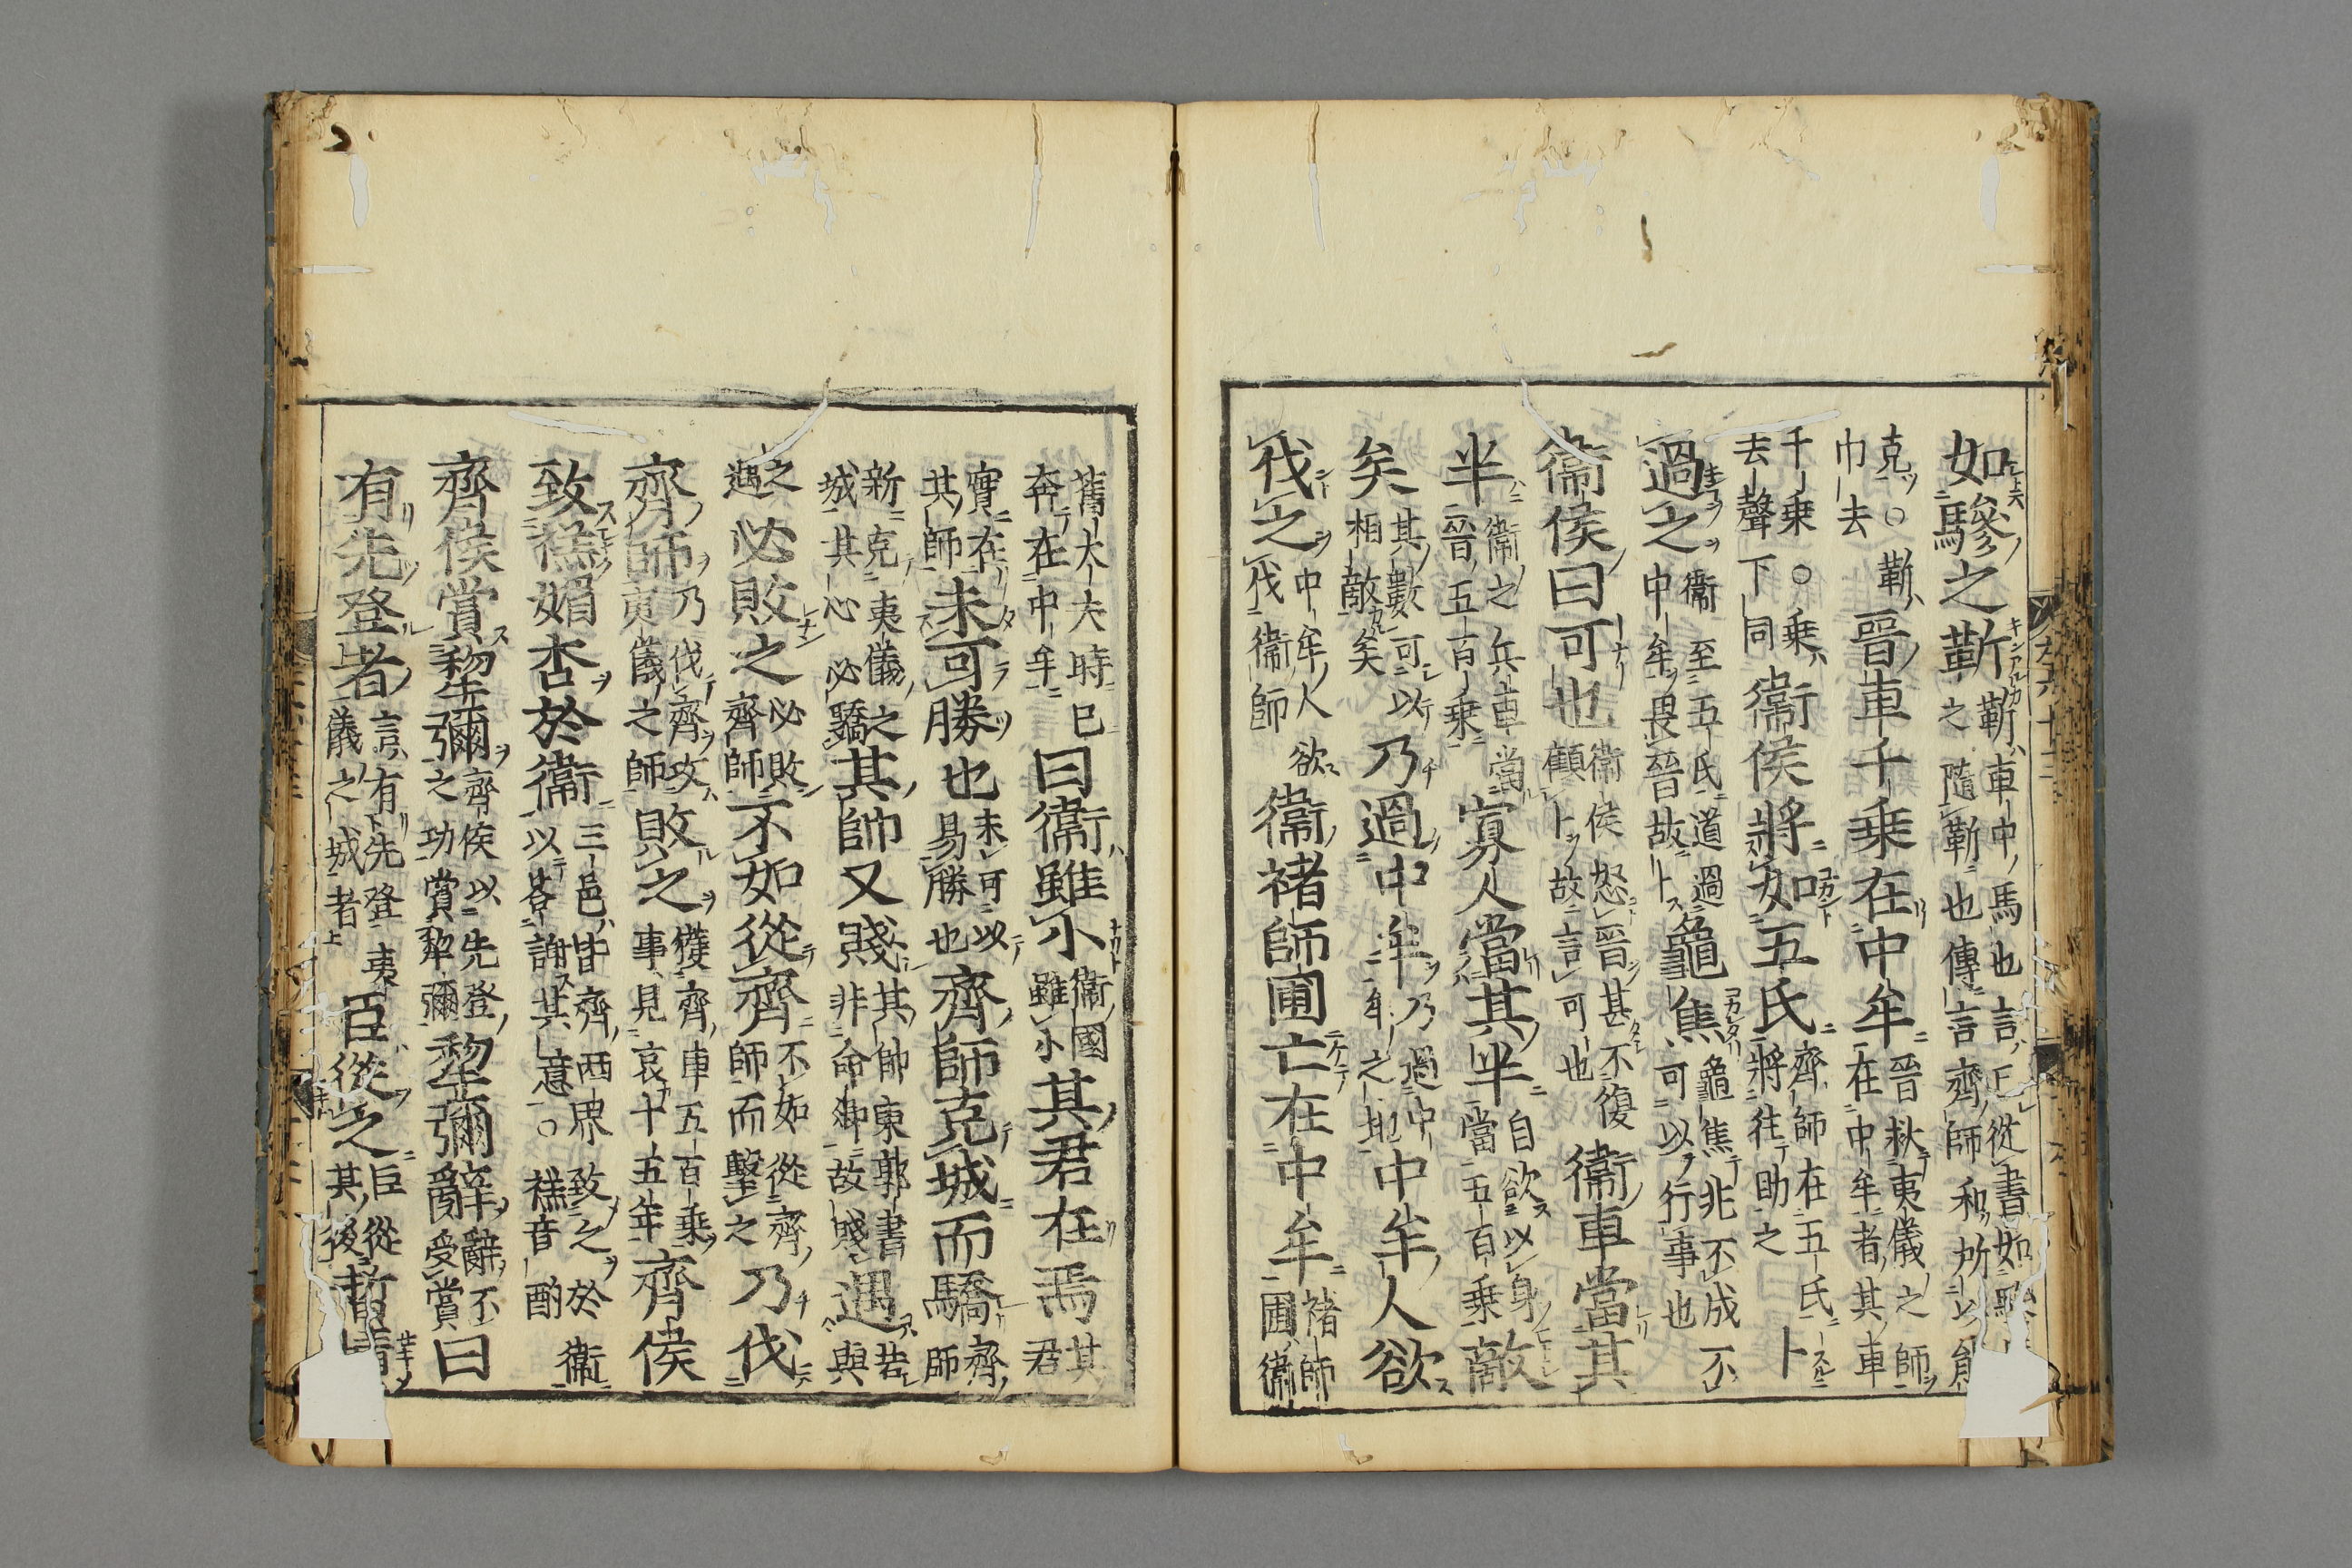 如驂之靳靳車中馬也言己從書如驂之隨靳也傳言齊師和所以
克○靳巾去晉車千乗在中牟晉救夷儀之師在中牟者其車
千乗○乗去聲下同衞侯將如五氏齊師在五氏將往助之卜
過之衞至五氏道過中牟畏晉故卜龜焦龜焦非不成不可以行事也
衞侯曰可也衞侯怒晉甚不復顧卜故言可也衞車當其
半衞之兵車當晉五百乗寡人當其半自欲以身當五百乗敵
矣其數可以相敵矣乃過中牟乃過中牟之地中牟人欲
伐之中牟人欲伐衞師衞褚師圃亡在中牟褚師圃衞
舊大夫時已奔在中牟曰衞雖小衞國雖小其君在焉其君
實在其師未可勝也未可以易勝也齊師克城而驕齊師
新克夷儀之城其心必驕其帥又賤其帥東郭書非命卿故賤遇若與
之遇必敗之必敗齊師不如從齊不如從齊師而擊之乃伐
齊師乃伐齊攻夷儀之師敗之獲齊車五百乗事見哀十五年齊侯
致禚媚杏於衞三邑皆齊西界以荅謝其意○致之於衞禚音酌
齊侯賞犂彌齊侯以先登之功賞犂彌犂彌辭辭不受賞曰
有先登者言有先登夷儀之城者臣從之臣從其後晳幘